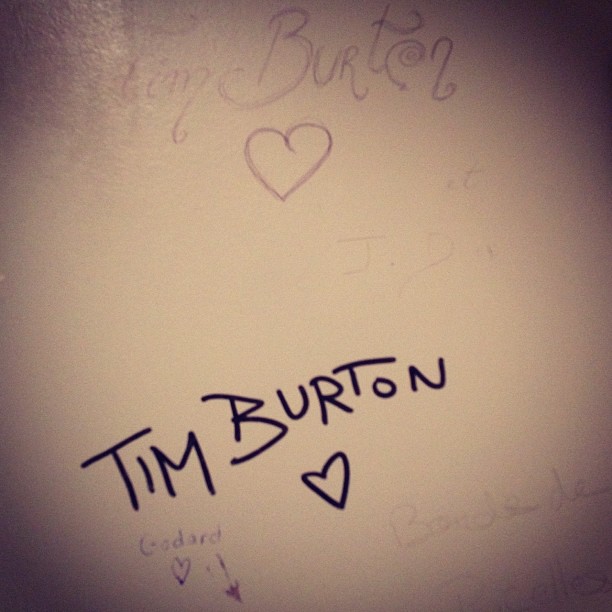 Tim Burton
et
TIM BURTON
Godard
Bande de